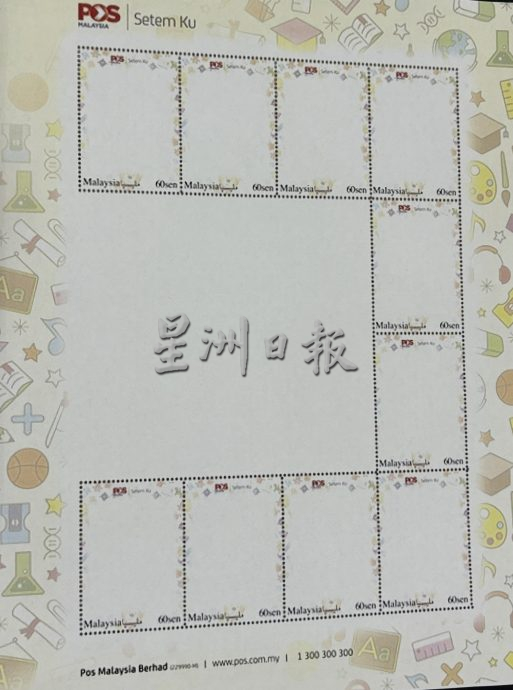 POS MALAYSIA | Setem Ku
POS | Setem Ku
POS | Setem Ku
POS | Setem Ku
POS | Setem Ku
Malaysia مليسيا 60sen
Malaysia مليسيا 60sen
Malaysia مليسيا 60sen
Malaysia مليسيا 60sen
POS | Setem Ku
Malaysia مليسيا 60sen
星洲日報
POS | Setem Ku
Malaysia مليسيا 60sen
POS | Setem Ku
POS | Setem Ku
POS | Setem Ku
POS | Setem Ku
Malaysia مليسيا 60sen
Malaysia مليسيا 60sen
Malaysia مليسيا 60sen
Malaysia مليسيا 60sen
Aa
Aa
Pos Malaysia Berhad | www.pos.com.my | 1 300 300 300